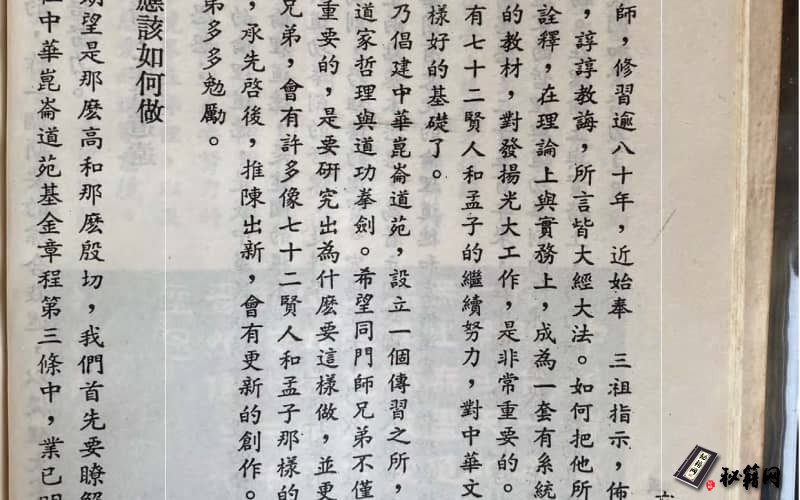 師，修習逾八十年，近始奉　三祖指示，佈
，諄諄教誨，所言皆大經大法。如何把他所
詮釋，在理論上與實務上，成為一套有系統
的教材，對發揚光大工作，是非常重要的。
有七十二賢人和孟子的繼續努力，對中華文
樣好的基礎了。
乃倡建中華崑崙道苑，設立一個傳習之所，
道家哲理與道功拳劍。希望同門師兄弟不僅
重要的，是要研究出為什麼要這樣做，並更
兄弟，會有許多像七十二賢人和孟子那樣的
，承先啓後，推陳出新，會有更新的創作。
弟多多勉勵。
應該如何做
期望是那麼高和那麼殷切，我們首先要瞭解
在中華崑崙道苑基金章程第三條中，業已明
秘籍网